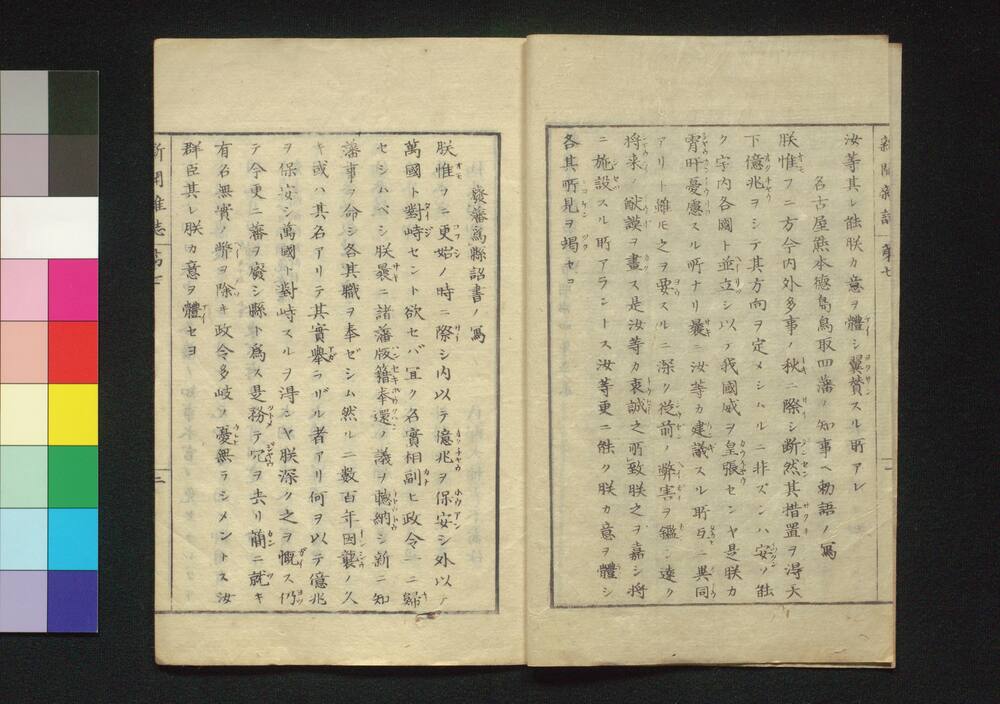 新聞雜誌 第七
汝等其レ能朕カ意ヲ體シ翼賛スル所アレ
名古屋熊本德島鳥取四藩ノ知事ヘ勅語ノ寫
朕惟フニ方今内外多事ノ秋ニ際シ断然其措置ヲ得天
下億兆ヲシテ其方向ヲ定メシムルニ非ズンハ安ソ能
ク宇内各國ト並立シ以テ我國威ヲ皇張センヤ是朕カ
宵旰憂慮スル所ナリ曩ニ汝等カ建議スル所互ニ異同
アリト雖𪜈之ヲ要スルニ深ク從前ノ弊害ヲ鑑ミ遠ク
将来ノ猷謨ヲ畫ス是汝等カ衷誠之所致朕之ヲ嘉シ将
ニ施設スル所アラントス汝等更ニ能ク朕カ意ヲ體シ
各其所見ヲ竭セヨ
廢藩爲縣詔書ノ寫
朕惟ヲニ更始ノ時ニ際シ内以テ億兆ヲ保安シ外以テ
萬國ト對峙セント欲セバ冝ク名實相副ヒ政令一ニ歸
セシムベシ朕曩ニ諸藩版籍奉還ノ議ヲ聴納シ新ニ知
藩事ヲ命シ各其職ヲ奉ゼシム然ルニ数百年因襲ノ久
キ或ハ其名アリテ其實擧ラザル者アリ何ヲ以テ億兆
ヲ保安シ萬國ト對峙スルヲ得ンヤ朕深ク之ヲ慨ス仍
テ今更ニ藩ヲ廢シ縣ト爲ス是務テ冗ヲ去リ簡ニ就キ
有名無實ノ弊ヲ除キ政令多岐ノ憂無ラシメントス汝
群臣其レ朕カ意ヲ體セヨ
新聞雜誌 第七 三